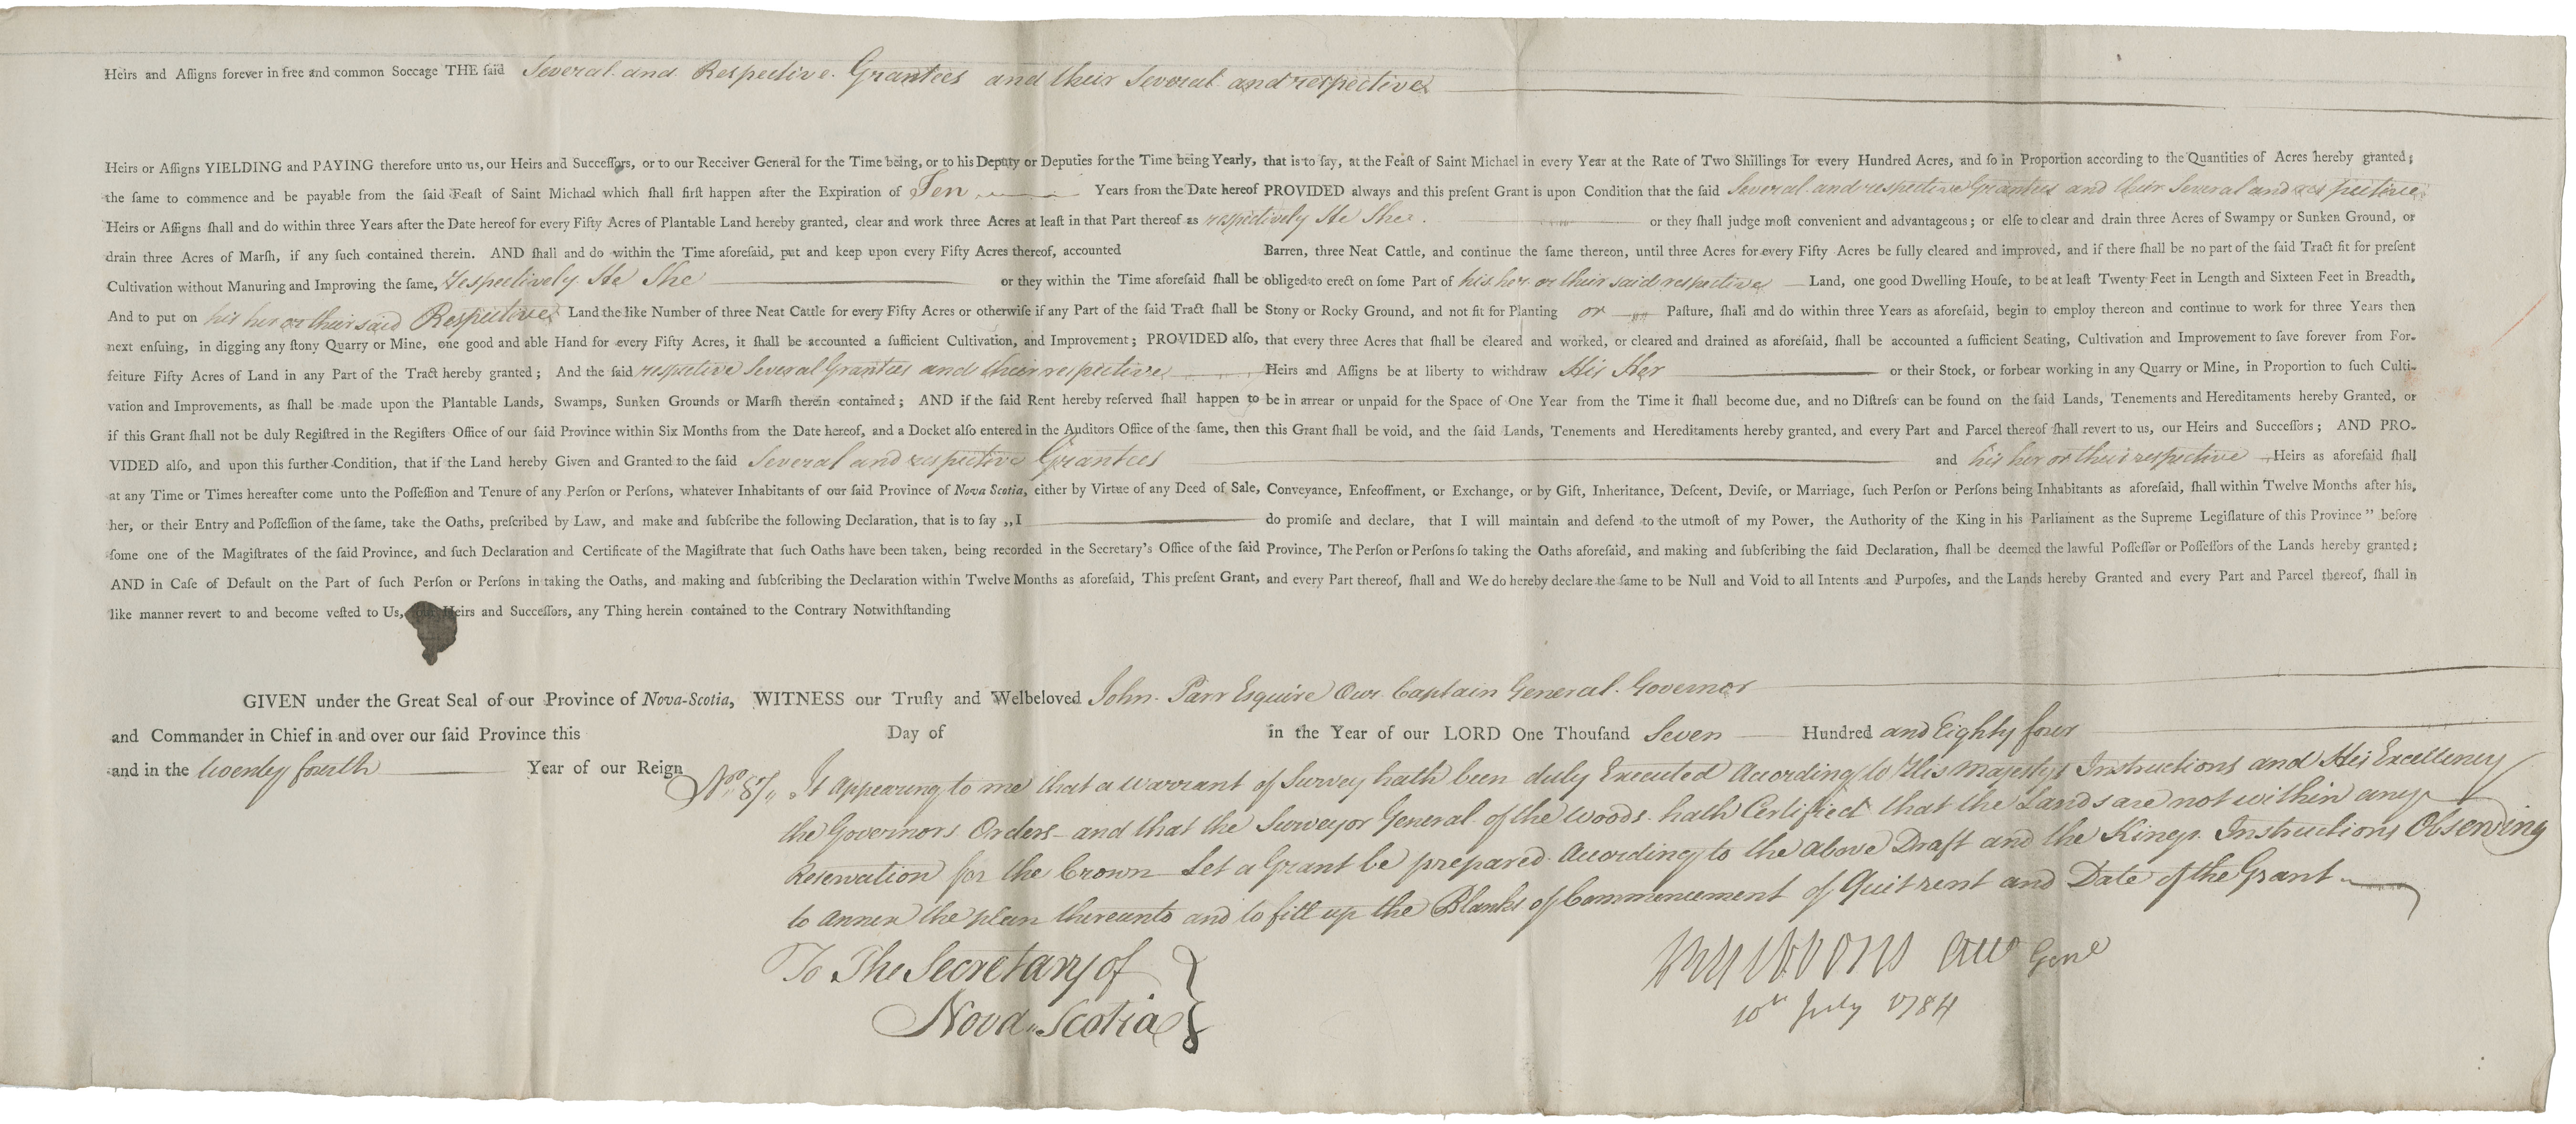 Heirs and Aſſigns forever in free and common Soccage THE ſaid Several and Respective Grantees and their Several and respective
Heirs or Aſſigns YIELDING and PAYING therefore unto us, our Heirs and Succeſſors, or to our Receiver General for the Time being, or to his Deputy or Deputies for the Time being Yearly, that is to ſay, at the Feaſt of Saint Michael in every Year at the Rate of Two Shillings for every Hundred Acres, and ſo in Proportion according to the Quantities of Acres hereby granted;
the ſame to commence and be payable from the ſaid Feaſt of Saint Michael which ſhall firſt happen after the Expiration of Ten Years from the Date hereof PROVIDED always and this preſent Grant is upon Condition that the ſaid Several and respective Grantees and their Several and respective
Heirs or Aſſigns ſhall and do within three Years after the Date hereof for every Fifty Acres of Plantable Land hereby granted, clear and work three Acres at leaſt in that Part thereof as respectively He She or they ſhall judge moſt convenient and advantageous; or elſe to clear and drain three Acres of Swampy or Sunken Ground, or
drain three Acres of Marſh, if any ſuch contained therein. AND ſhall and do within the Time aforeſaid, put and keep upon every Fifty Acres thereof, accounted Barren, three Neat Cattle, and continue the ſame thereon, until three Acres for every Fifty Acres be fully cleared and improved, and if there ſhall be no part of the ſaid Tract fit for preſent
Cultivation without Manuring and Improving the ſame, respectively He She or they within the Time aforeſaid ſhall be obliged to erect on ſome Part of his her or their said respective Land, one good Dwelling Houſe, to be at leaſt Twenty Feet in Length and Sixteen Feet in Breadth,
And to put on his her or their said Respective Land the like Number of three Neat Cattle for every Fifty Acres or otherwiſe if any Part of the ſaid Tract ſhall be Stony or Rocky Ground, and not fit for Planting or Paſture, ſhall and do within three Years as aforeſaid, begin to employ thereon and continue to work for three Years then
next enſuing, in digging any ſtony Quarry or Mine, one good and able Hand for every Fifty Acres, it ſhall be accounted a ſufficient Cultivation, and Improvement; PROVIDED alſo, that every three Acres that ſhall be cleared and worked, or cleared and drained as aforeſaid, ſhall be accounted a ſufficient Seating, Cultivation and Improvement to ſave forever from For-
feiture Fifty Acres of Land in any Part of the Tract hereby granted; And the ſaid respective Several Grantees and their respective Heirs and Aſſigns be at liberty to withdraw His Her or their Stock, or forbear working in any Quarry or Mine, in Proportion to ſuch Culti-
vation and Improvements, as ſhall be made upon the Plantable Lands, Swamps, Sunken Grounds or Marſh therein contained; AND if the ſaid Rent hereby reſerved ſhall happen to be in arrear or unpaid for the Space of One Year from the Time it ſhall become due, and no Diſtreſs can be found on the ſaid Lands, Tenements and Hereditaments hereby Granted, or
if this Grant ſhall not be duly Regiſtred in the Regiſters Office of our ſaid Province within Six Months from the Date hereof, and a Docket alſo entered in the Auditors Office of the ſame, then this Grant ſhall be void, and the ſaid Lands, Tenements and Hereditaments hereby granted, and every Part and Parcel thereof ſhall revert to us, our Heirs and Succeſſors; AND PRO-
VIDED alſo, and upon this further Condition, that if the Land hereby Given and Granted to the ſaid Several and respective Grantees and his her or their respective Heirs as aforeſaid ſhall
at any Time or Times hereafter come unto the Poſſeſſion and Tenure of any Perſon or Perſons, whatever Inhabitants of our ſaid Province of Nova Scotia, either by Virtue of any Deed of Sale, Conveyance, Enfeoffment, or Exchange, or by Gift, Inheritance, Deſcent, Deviſe, or Marriage, ſuch Perſon or Perſons being Inhabitants as aforeſaid, ſhall within Twelve Months after his,
her, or their Entry and Poſſeſſion of the ſame, take the Oaths, preſcribed by Law, and make and ſubſcribe the following Declaration, that is to ſay „I do promiſe and declare, that I will maintain and defend to the utmoſt of my Power, the Authority of the King in his Parliament as the Supreme Legiſlature of this Province" before
ſome one of the Magiſtrates of the ſaid Province, and ſuch Declaration and Certificate of the Magiſtrate that ſuch Oaths have been taken, being recorded in the Secretary's Office of the ſaid Province, The Perſon or Perſons ſo taking the Oaths aforeſaid, and making and ſubſcribing the ſaid Declaration, ſhall be deemed the lawful Poſſeſſor or Poſſeſſors of the Lands hereby granted;
AND in Caſe of Default on the Part of ſuch Perſon or Perſons in taking the Oaths, and making and ſubſcribing the Declaration within Twelve Months as aforeſaid, This preſent Grant, and every Part thereof, ſhall and We do hereby declare the ſame to be Null and Void to all Intents and Purpoſes, and the Lands hereby Granted and every Part and Parcel thereof, ſhall in
like manner revert to and become veſted to Us, our Heirs and Succeſſors, any Thing herein contained to the Contrary Notwithſtanding
GIVEN under the Great Seal of our Province of Nova-Scotia, WITNESS our Truſty and Welbeloved John Parr Esquire Our Captain General Governor
and Commander in Chief in and over our ſaid Province this Day of in the Year of our LORD One Thouſand Seven Hundred and Eighty four
and in the twenty fourth Year of our Reign
No. 87 It Appearing to me that a warrant of Survey hath been duly Executed According to His Majestys Instructions and His Excellency
the Governors Orders and that the Surveyor General of the woods hath Certified that the Lands are not within any
Reservation for the Crown Let a Grant be prepared According to the Above Draft and the Kings Instructions Observing
to annex the plan thereunto and to fill up the Blanks of Commencement of Quit rent and Date of the Grant
To The Secretary of
Nova Scotia
Genl
10th July 1784